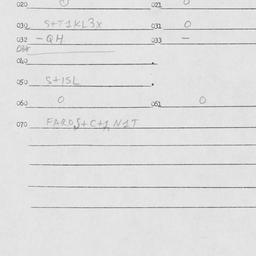 020 0 021 0
030 S+T1KL3X 031 0
032 -QH 033 -
034
040
050 S+1SL
060 0 061 0
070 FAROS+C+1N1T